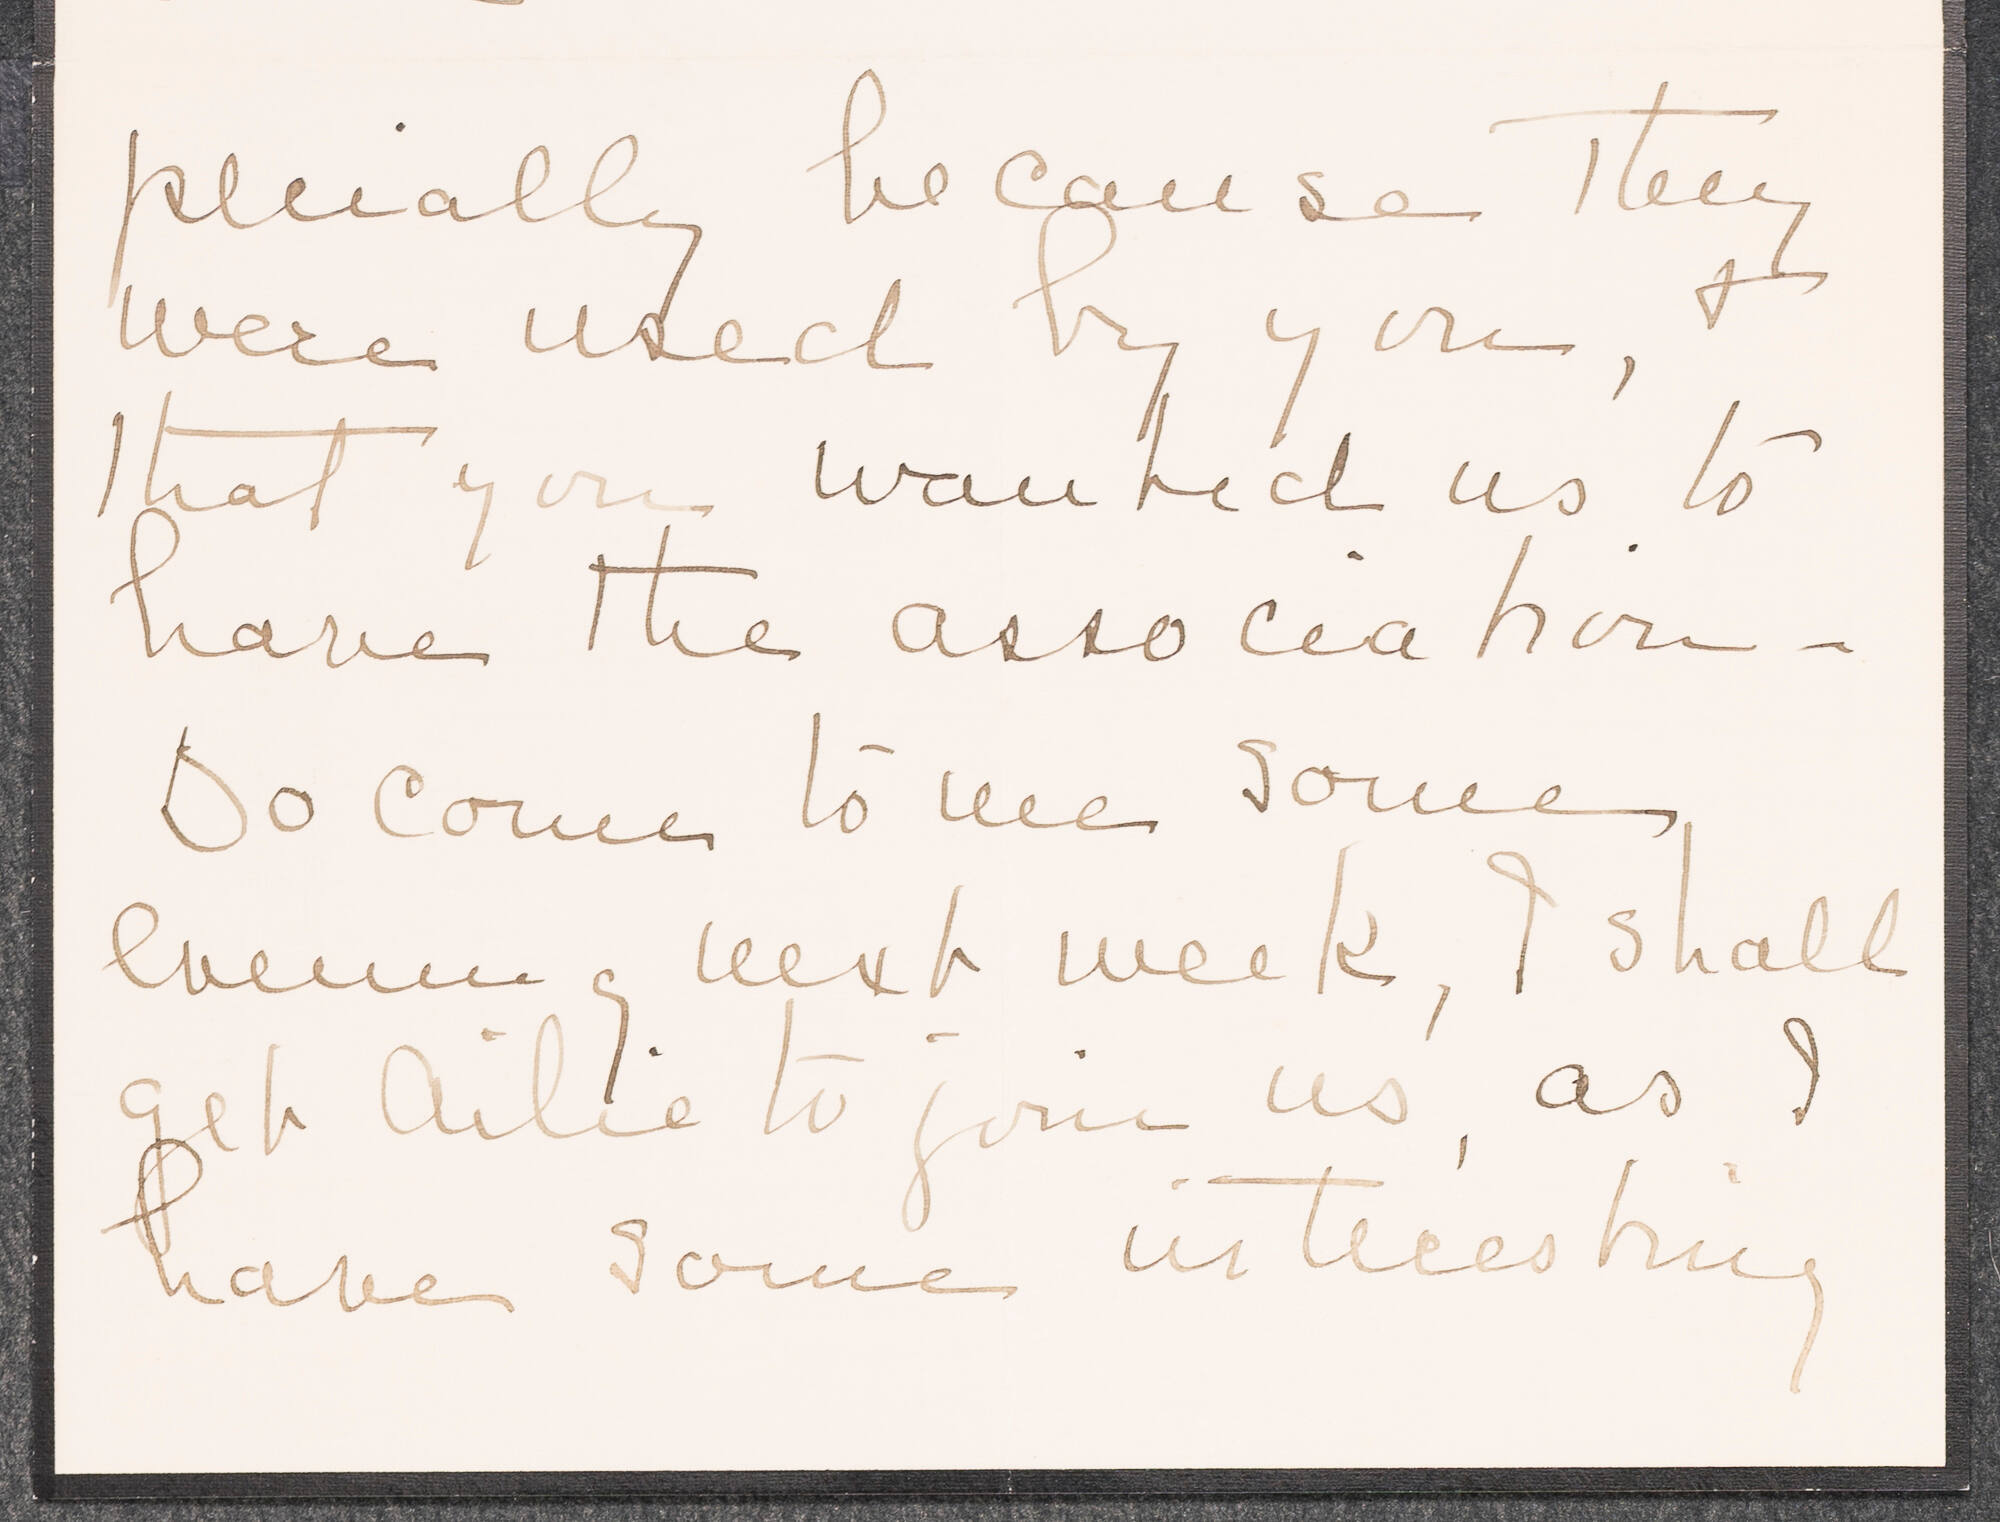 pecially because they
were used by you, &
that you wanted us to
have the association -
Do come to me some
evening next week, I shall
get Ailie to join us, as I
have some interesting